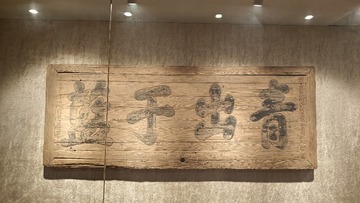 青出于藍